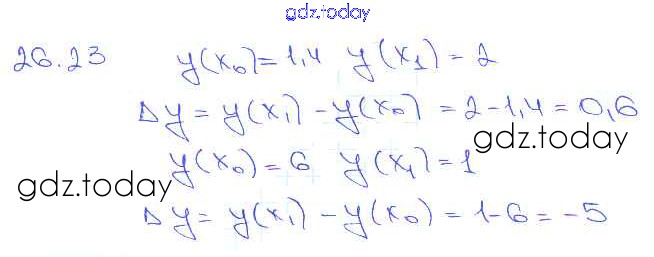 gdz.today
26.23 y(x₀)=1,4 y(x₁)=2
Δy = y(x₁) - y(x₀) = 2-1,4 = 0,6
gdz.today
y(x₀)=6 y(x₁)=1
gdz.today
Δy = y(x₁) - y(x₀) = 1-6 = -5